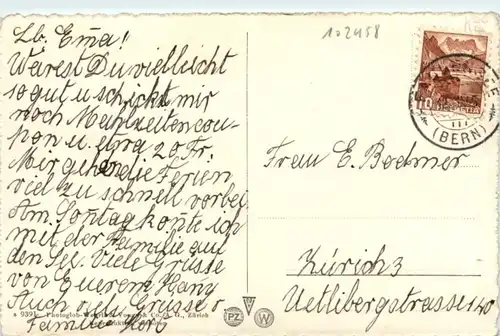 Lb. Ema!
Wärest Du vielleicht
so gut u. schickst mir
noch Mahlzeitencou-
pon u. etwa 20 Fr.
Mir gehen die Ferien
viel zu schnell vorbei.
Am Sontag konte ich
mit der Familie auf
den See. Viele Grüsse
von Euerem Hany
Auch viele Grüsse v
Familie
102458
10
HELVETIA
III
(BERN)
Frau E. Bodmer
Zürich 3
Uetlibergstrasse 140
Photoglob-Wehrli & Vouga & Co. A. G., Zürich
PZ
W